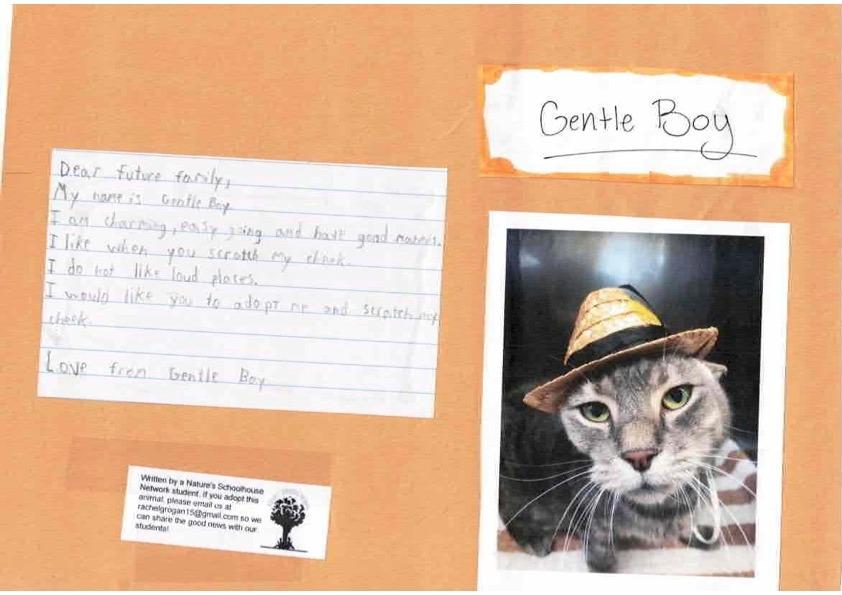 Dear future family,
My name is Gentle Boy
I am charming, easy going and have good maners.
I like when you scratch my cheek.
I do not like loud places.
I would like you to adopt me and scratch my
cheek.
Love from Gentle Boy
Written by a Nature's Schoolhouse
Network student. If you adopt this
animal, please email us at
rachelgrogan15@gmail.com so we
can share the good news with our
students!
Gentle Boy